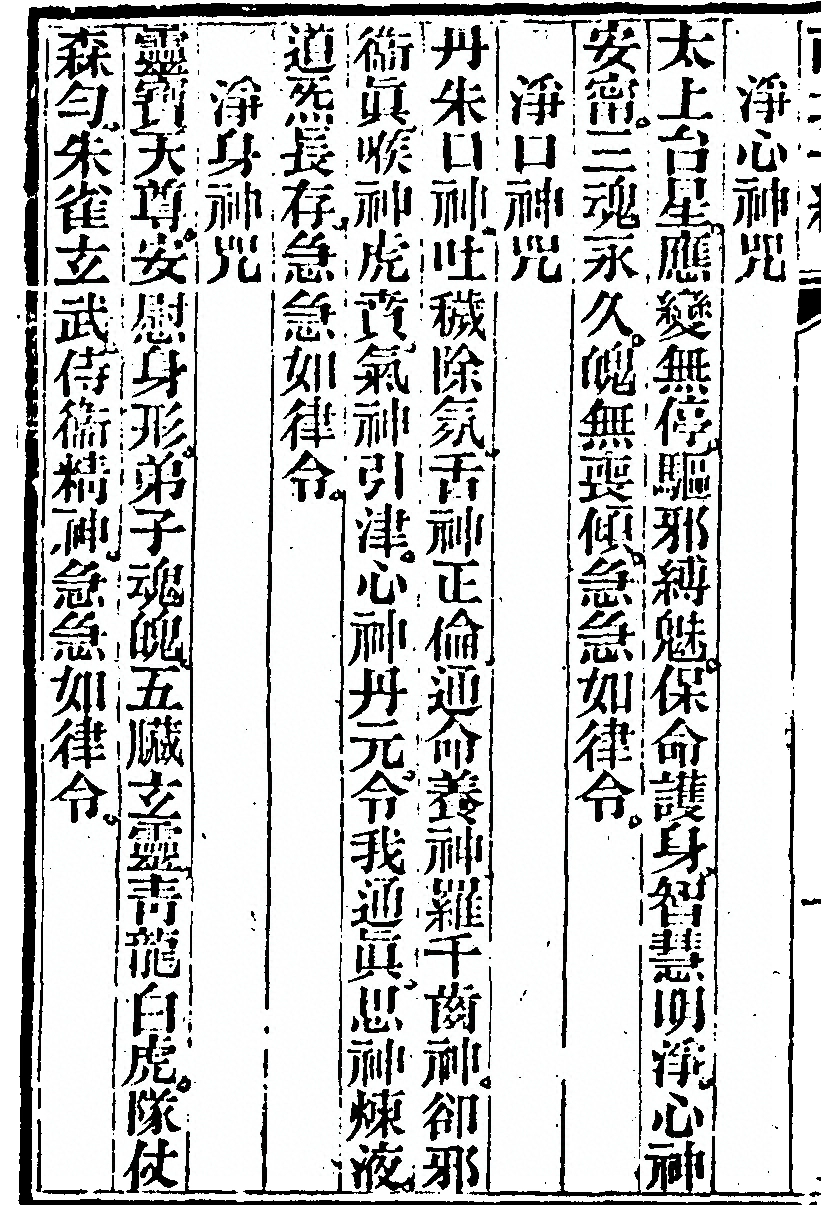 淨心神咒
太上台星。應變無停。驅邪縛魅。保命護身。智慧明淨。心神
安寗。三魂永久。魄無喪傾。急急如律令。
淨口神咒
丹朱口神。吐穢除氛。舌神正倫。通命養神。羅千齒神。卻邪
衞眞。喉神虎賁。氣神引津。心神丹元。令我通眞。思神煉液。
道炁長存。急急如律令。
淨身神咒
靈寶天尊。安慰身形。弟子魂魄。五臟玄靈。青龍白虎。隊仗
森勻。朱雀玄武。侍衞精神。急急如律令。